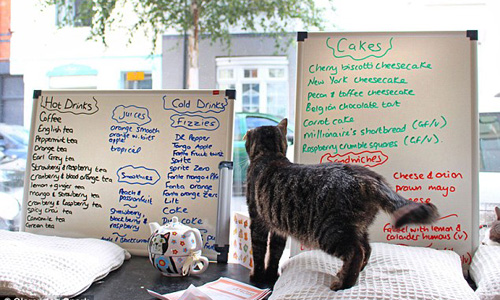 Hot Drinks
Coffee
English tea
Peppermint tea
Orange tea
Earl Grey tea
Strawberry & raspberry tea
Cranberry & blood orange tea
Lemon + ginger tea
mango & strawberry tea
Cranberry & Raspberry tea
Spicy chai tea
Camomile tea
Green tea
Juices
orange smooth
orange w bits
apple
tropical
Smoothies
Peach &
passionfruit
Strawberry
blackberry
Cold Drinks
Fizzies
Dr Pepper
Tango Apple
Fanta Fruit twist
Sprite
Sprite Zero
Fanta orange
Fanta orange
zero
Coke
Diet Coke
Cakes
Cherry biscotti cheesecake
New York cheesecake
pecan & toffee cheesecake
Belgian chocolate tart
Carrot cake
millionaire's shortbread (GF/V)
Raspberry crumble squares (GF/V)
Sandwiches
Cheese & onion
prawn mayo
cheese
Filled with lemon &
coriander humous (v)